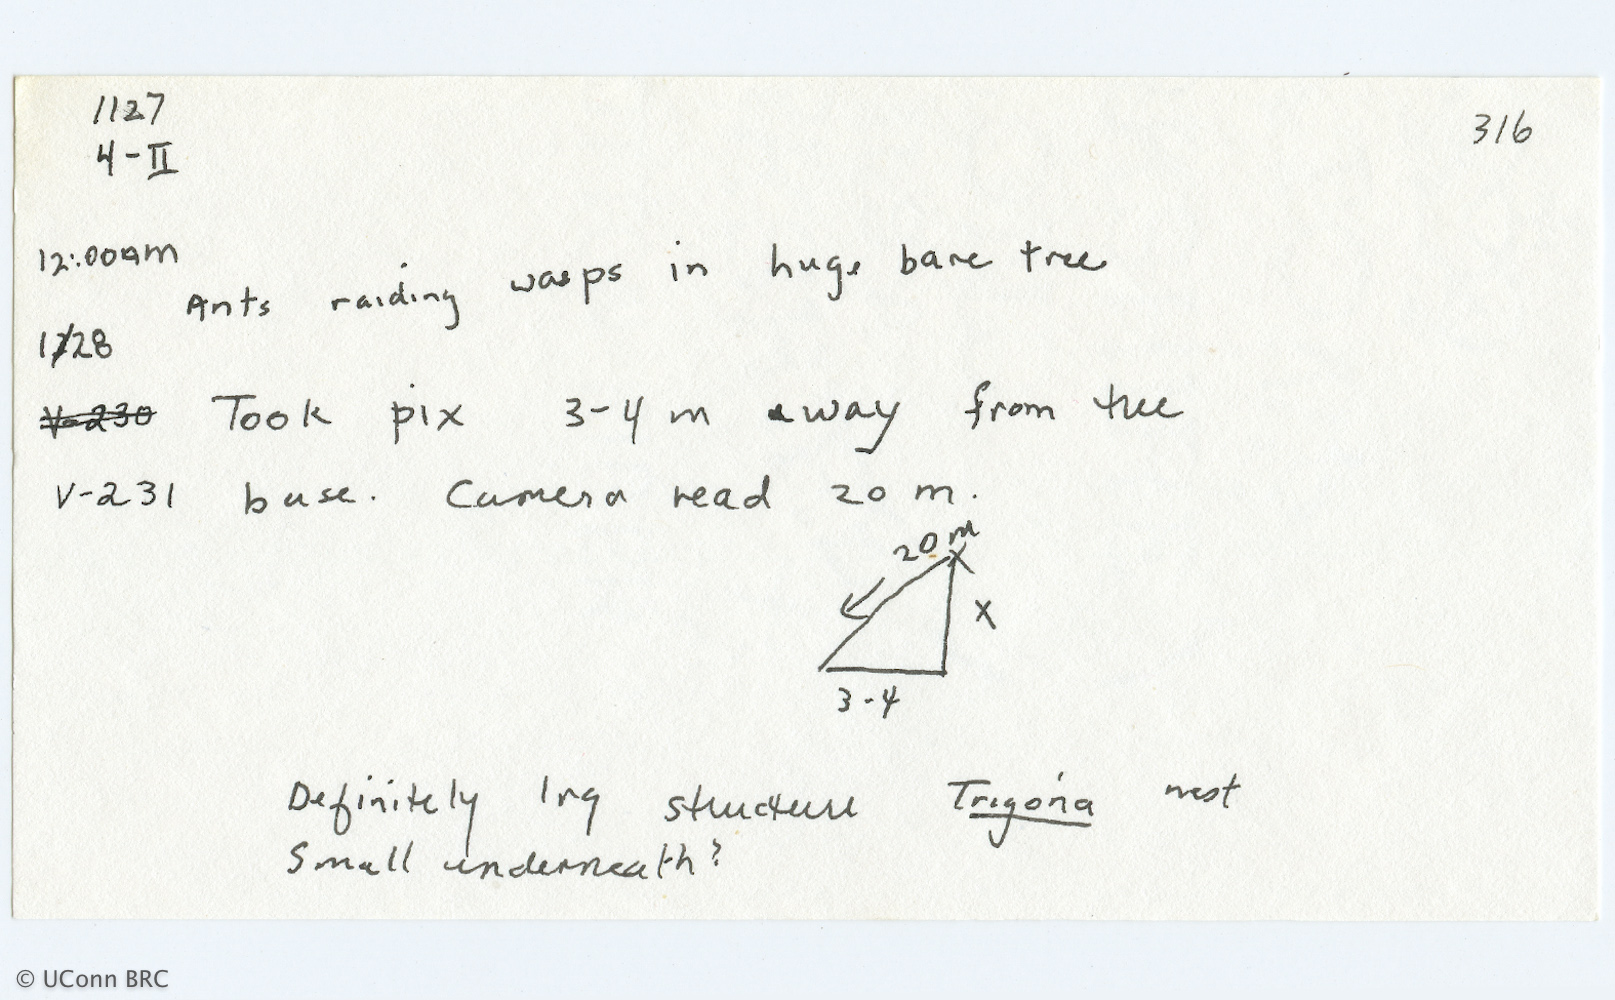 1127
4-II
316
12:00am
Ants raiding wasps in huge bare tree
1128
V-230 Took pix 3-4 m away from tree
V-231 base. Camera read 20 m.
20 m
X
3-4
Definitely lrg structure Trigona nest
Small underneath?
© UConn BRC